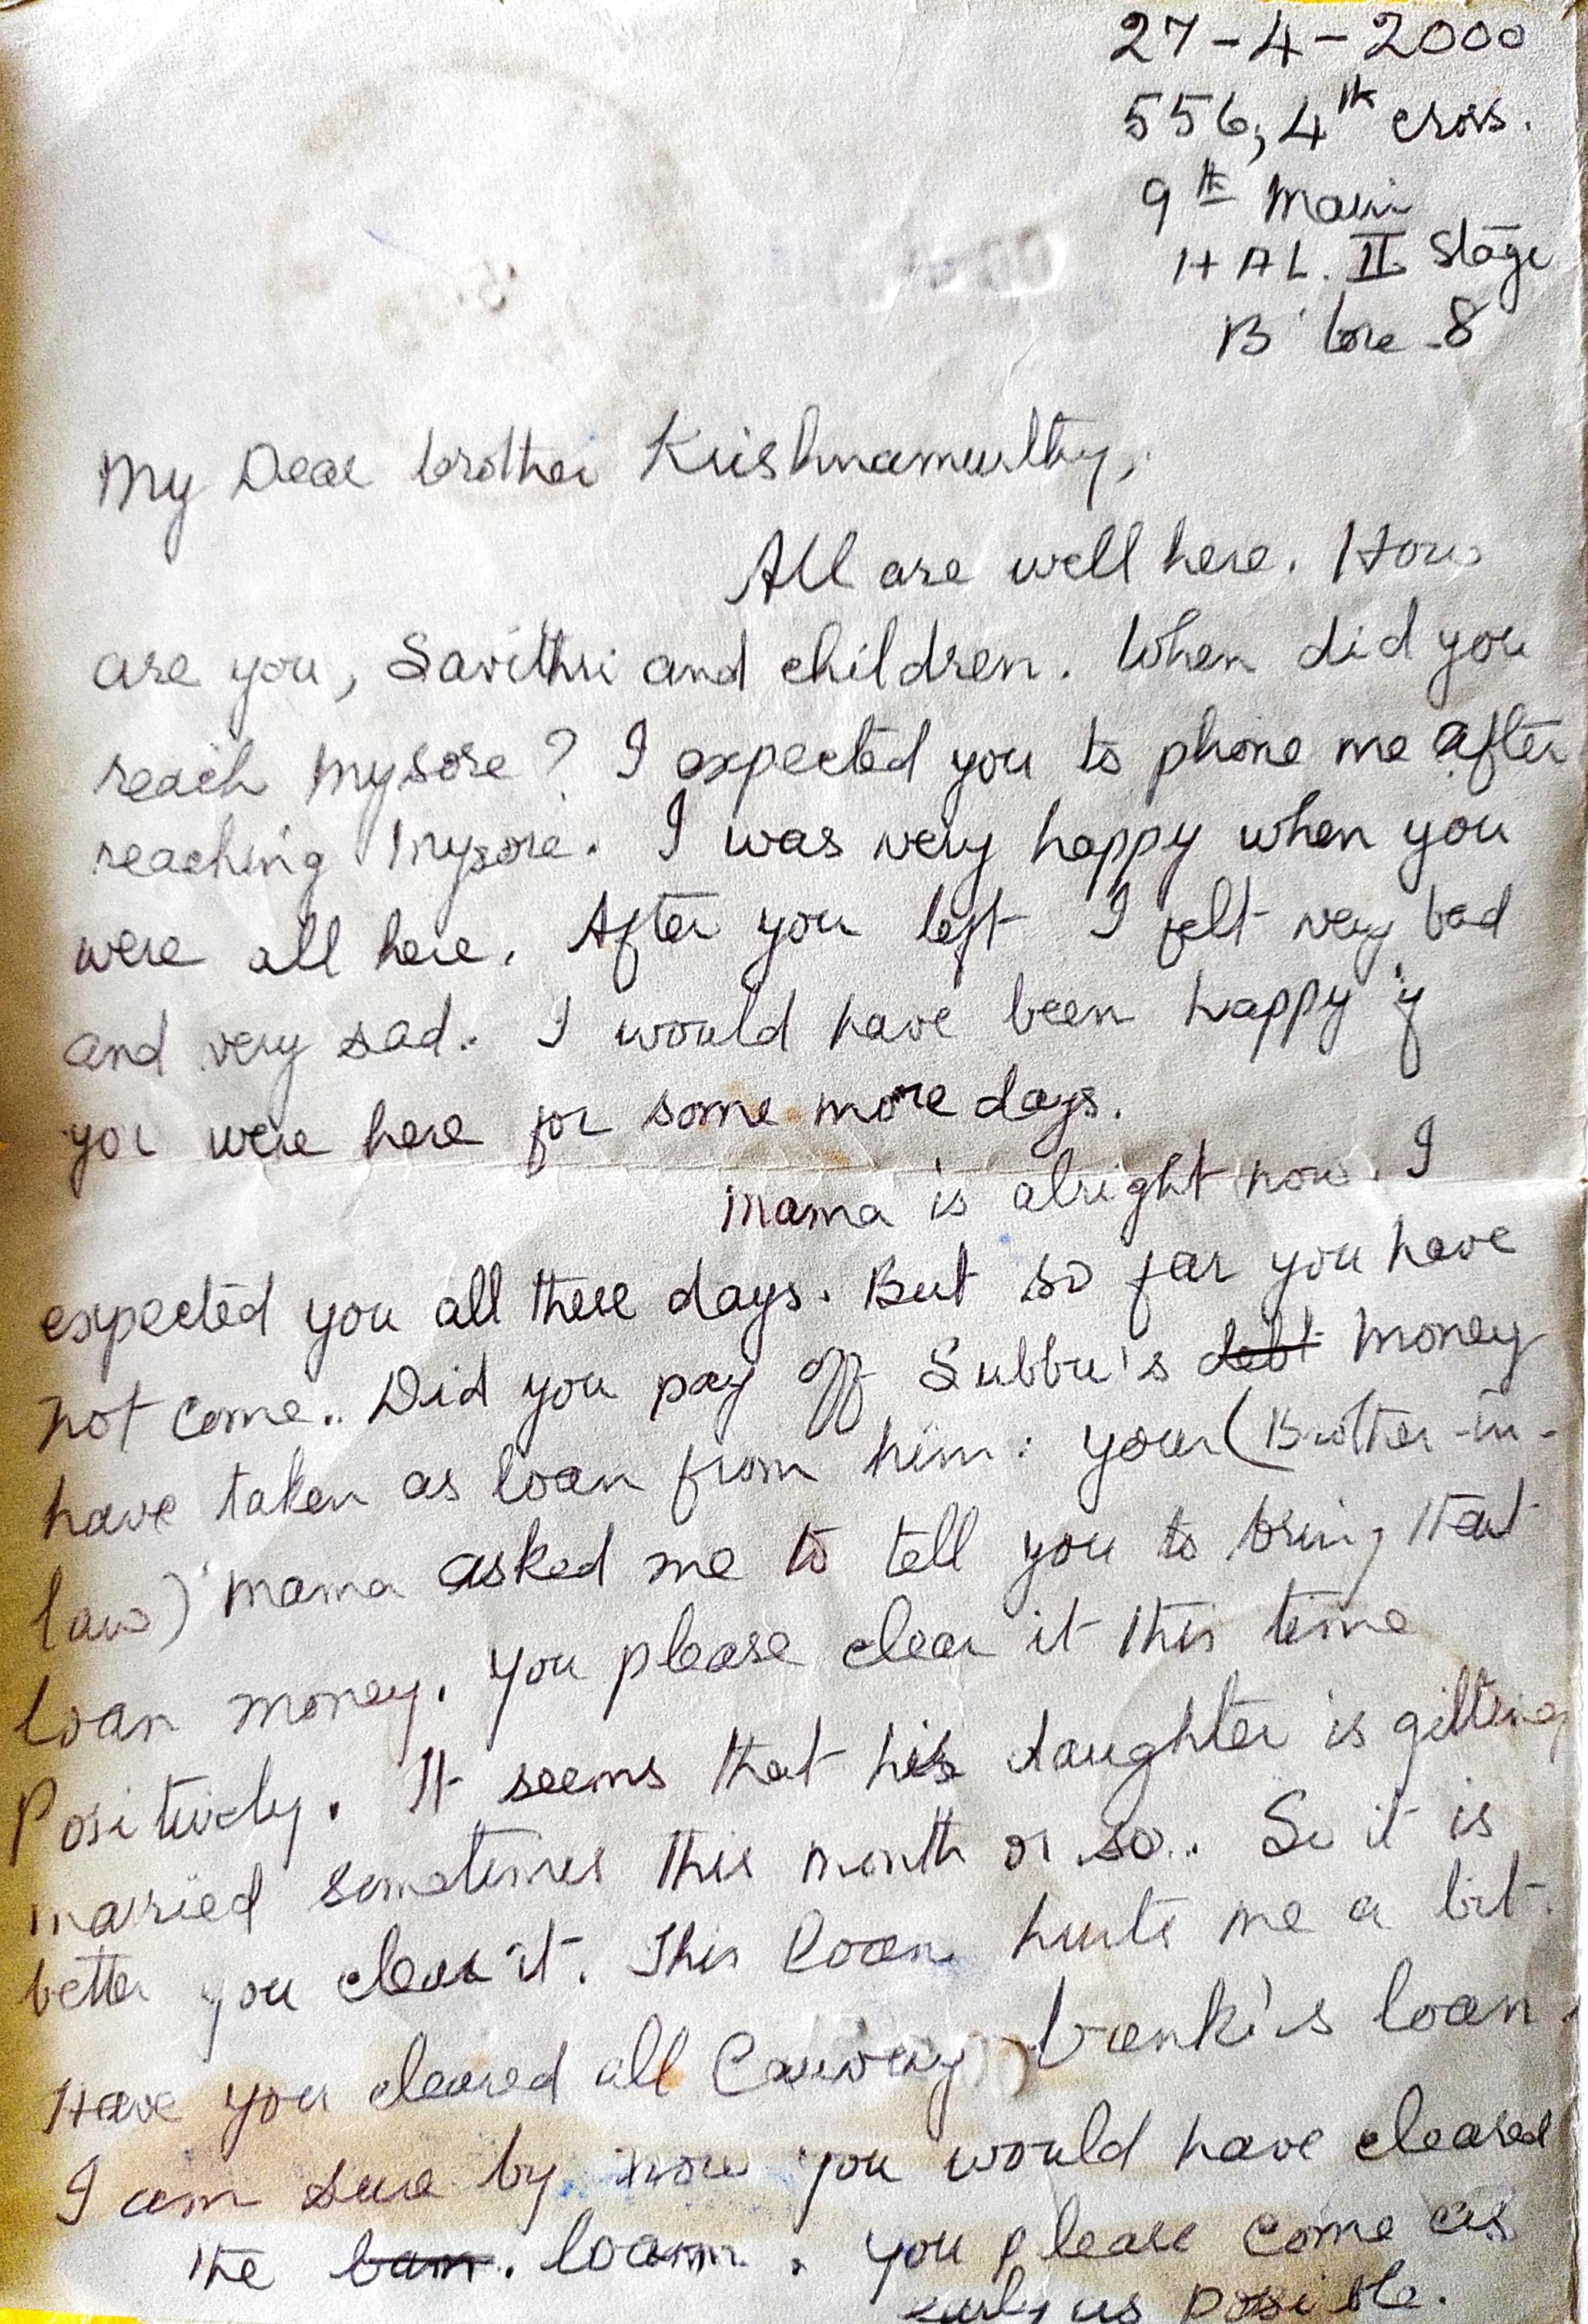 27-4-2000
556, 4th cross.
9th Main
HAL. II Stage
B'lore-8
My Dear brother Krishnamurthy,
All are well here. How
are you, Savithri and children. When did you
reach Mysore? I expected you to phone me after
reaching Mysore. I was very happy when you
were all here. After you left I felt very bad
and very sad. I would have been happy if
you were here for some more days.
Mama is alright now. I
expected you all these days. But so far you have
not come.. Did you pay off Subbu's debt money
have taken as loan from him: your (Brother-in-
law) Mama asked me to tell you to bring that
loan money. You please clear it this time
Positively. It seems that his daughter is getting
married sometimes this month or so.. So it is
better you clear it. This loan hurts me a bit.
Have you cleared all bank's loan.
I am sure by now you would have cleared
the loan. You please come as
early as posible.